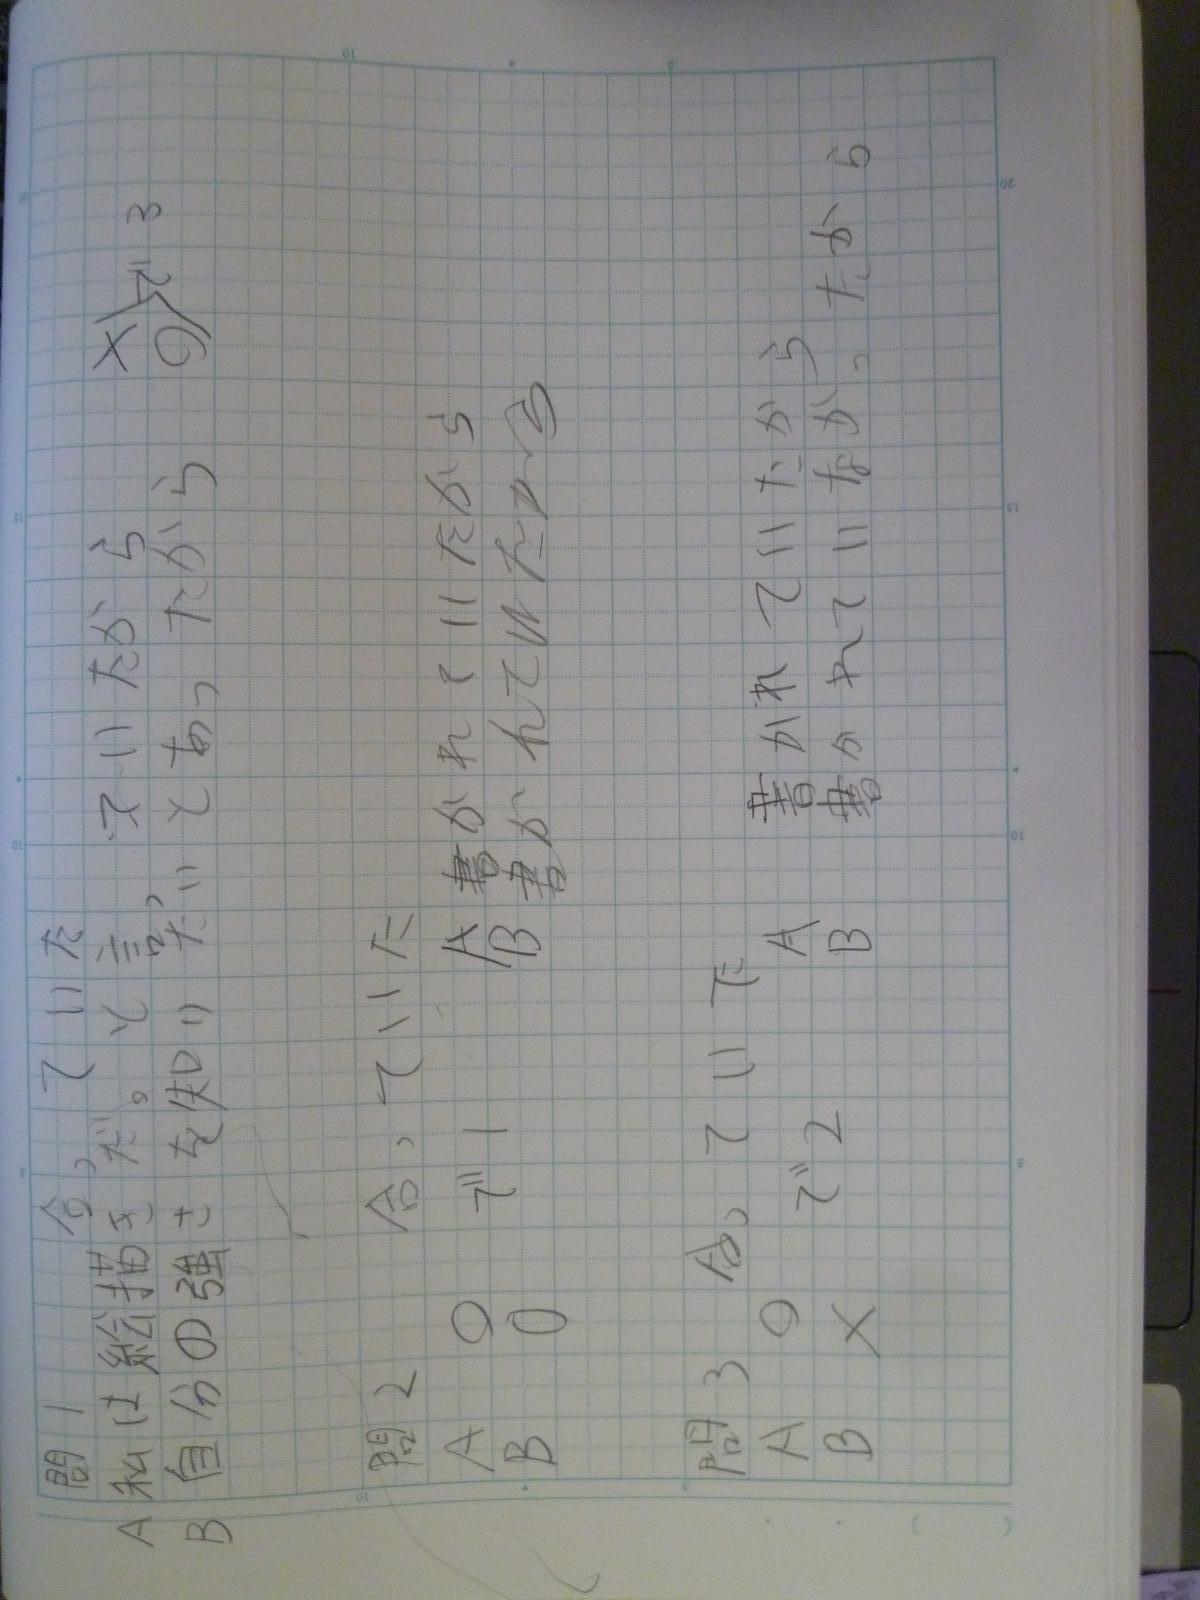 問1 合っていた
A 私は絵描きだ。と言っていたから ×
B 自分の強さを知りたいとあったから ○ で3
問2 合っていた
A ○ で1 A 書かれていたから
B ○ B 書かれていたから
問3 合っていた
A ○ で2 A 書かれていたから
B × B 書かれていなかったから